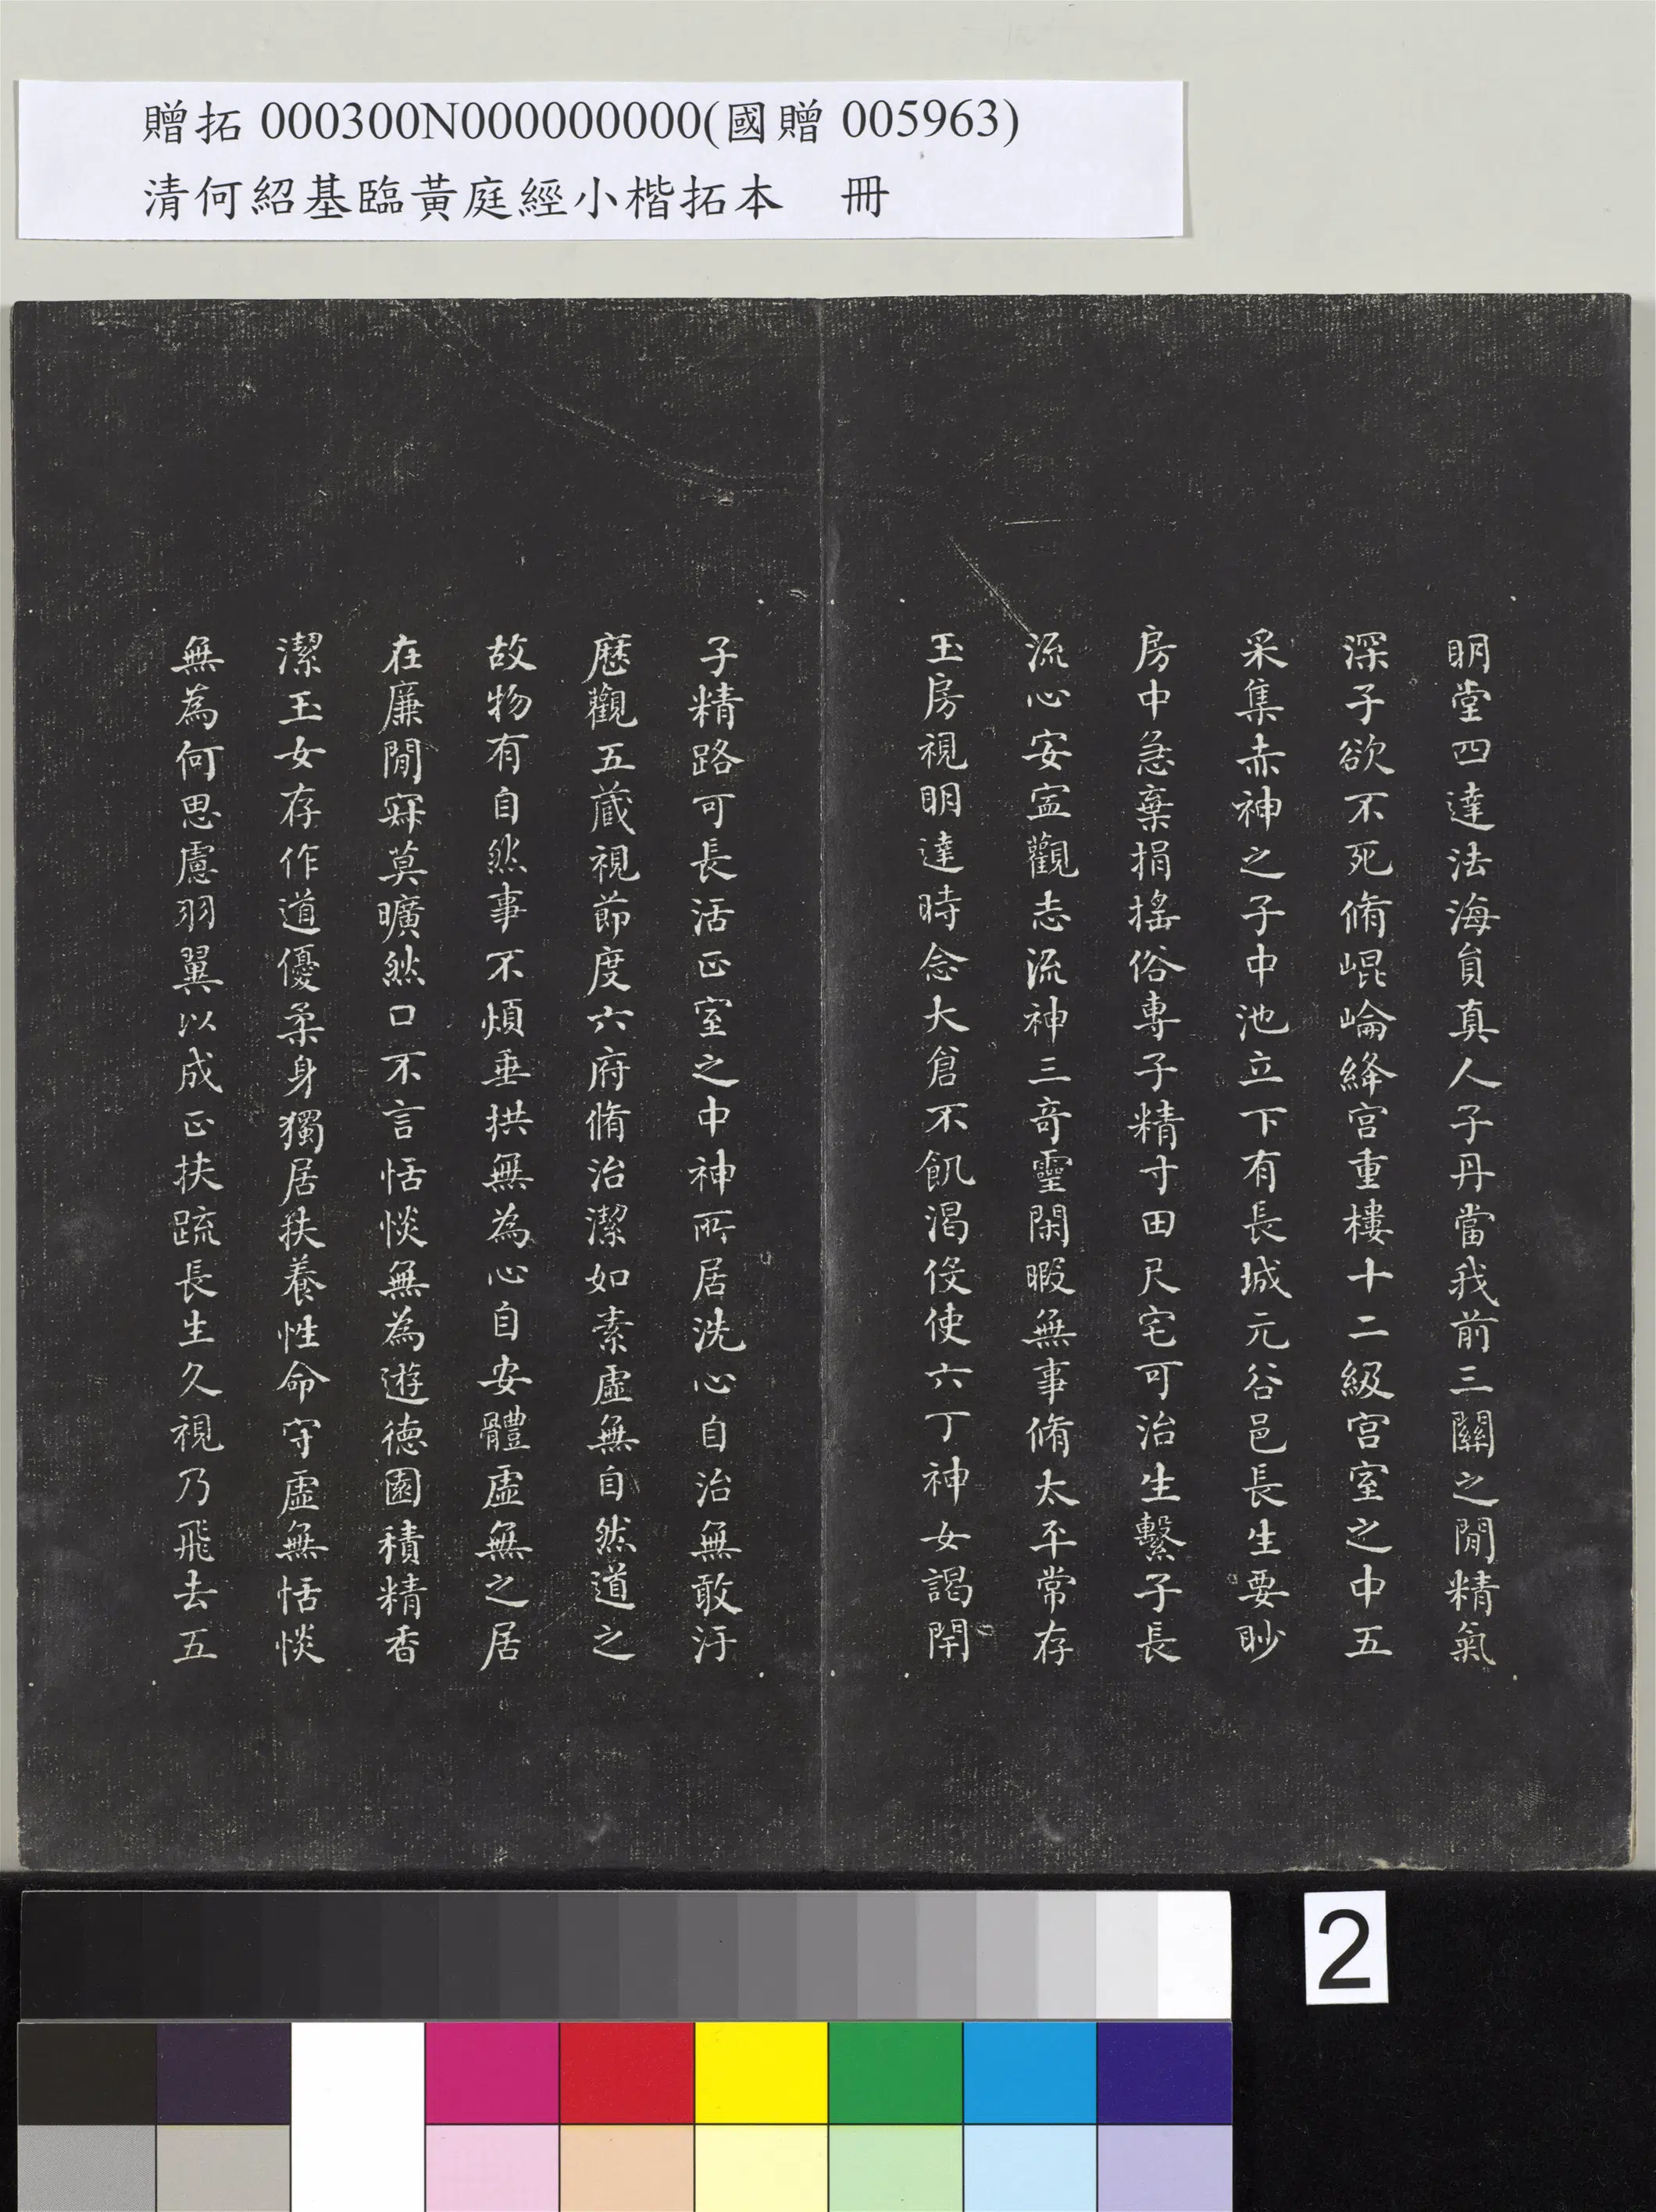 贈拓 000300N000000000(國贈 005963)
清何紹基臨黃庭經小楷拓本 冊
明堂四達法海員真人子丹當我前三關之閒精氣
深子欲不死脩崐崘絳宮重樓十二級宮室之中五
采集赤神之子中池立下有長城元谷邑長生要眇
房中急棄捐搖俗專子精寸田尺宅可治生繫子長
流心安寍觀志流神三奇靈閑暇無事脩太平常存
玉房視明達時念大倉不飢渴伇使六丁神女謁閇
子精路可長活正室之中神所居洗心自治無敢汙
歷觀五藏視節度六府脩治潔如素虛無自然道之
故物有自然事不煩垂拱無為心自安體虛無之居
在廉閒寂莫曠然口不言恬惔無為遊德園積精香
潔玉女存作道優柔身獨居扶養性命守虛無恬惔
無為何思慮羽翼以成正扶疏長生久視乃飛去五
2